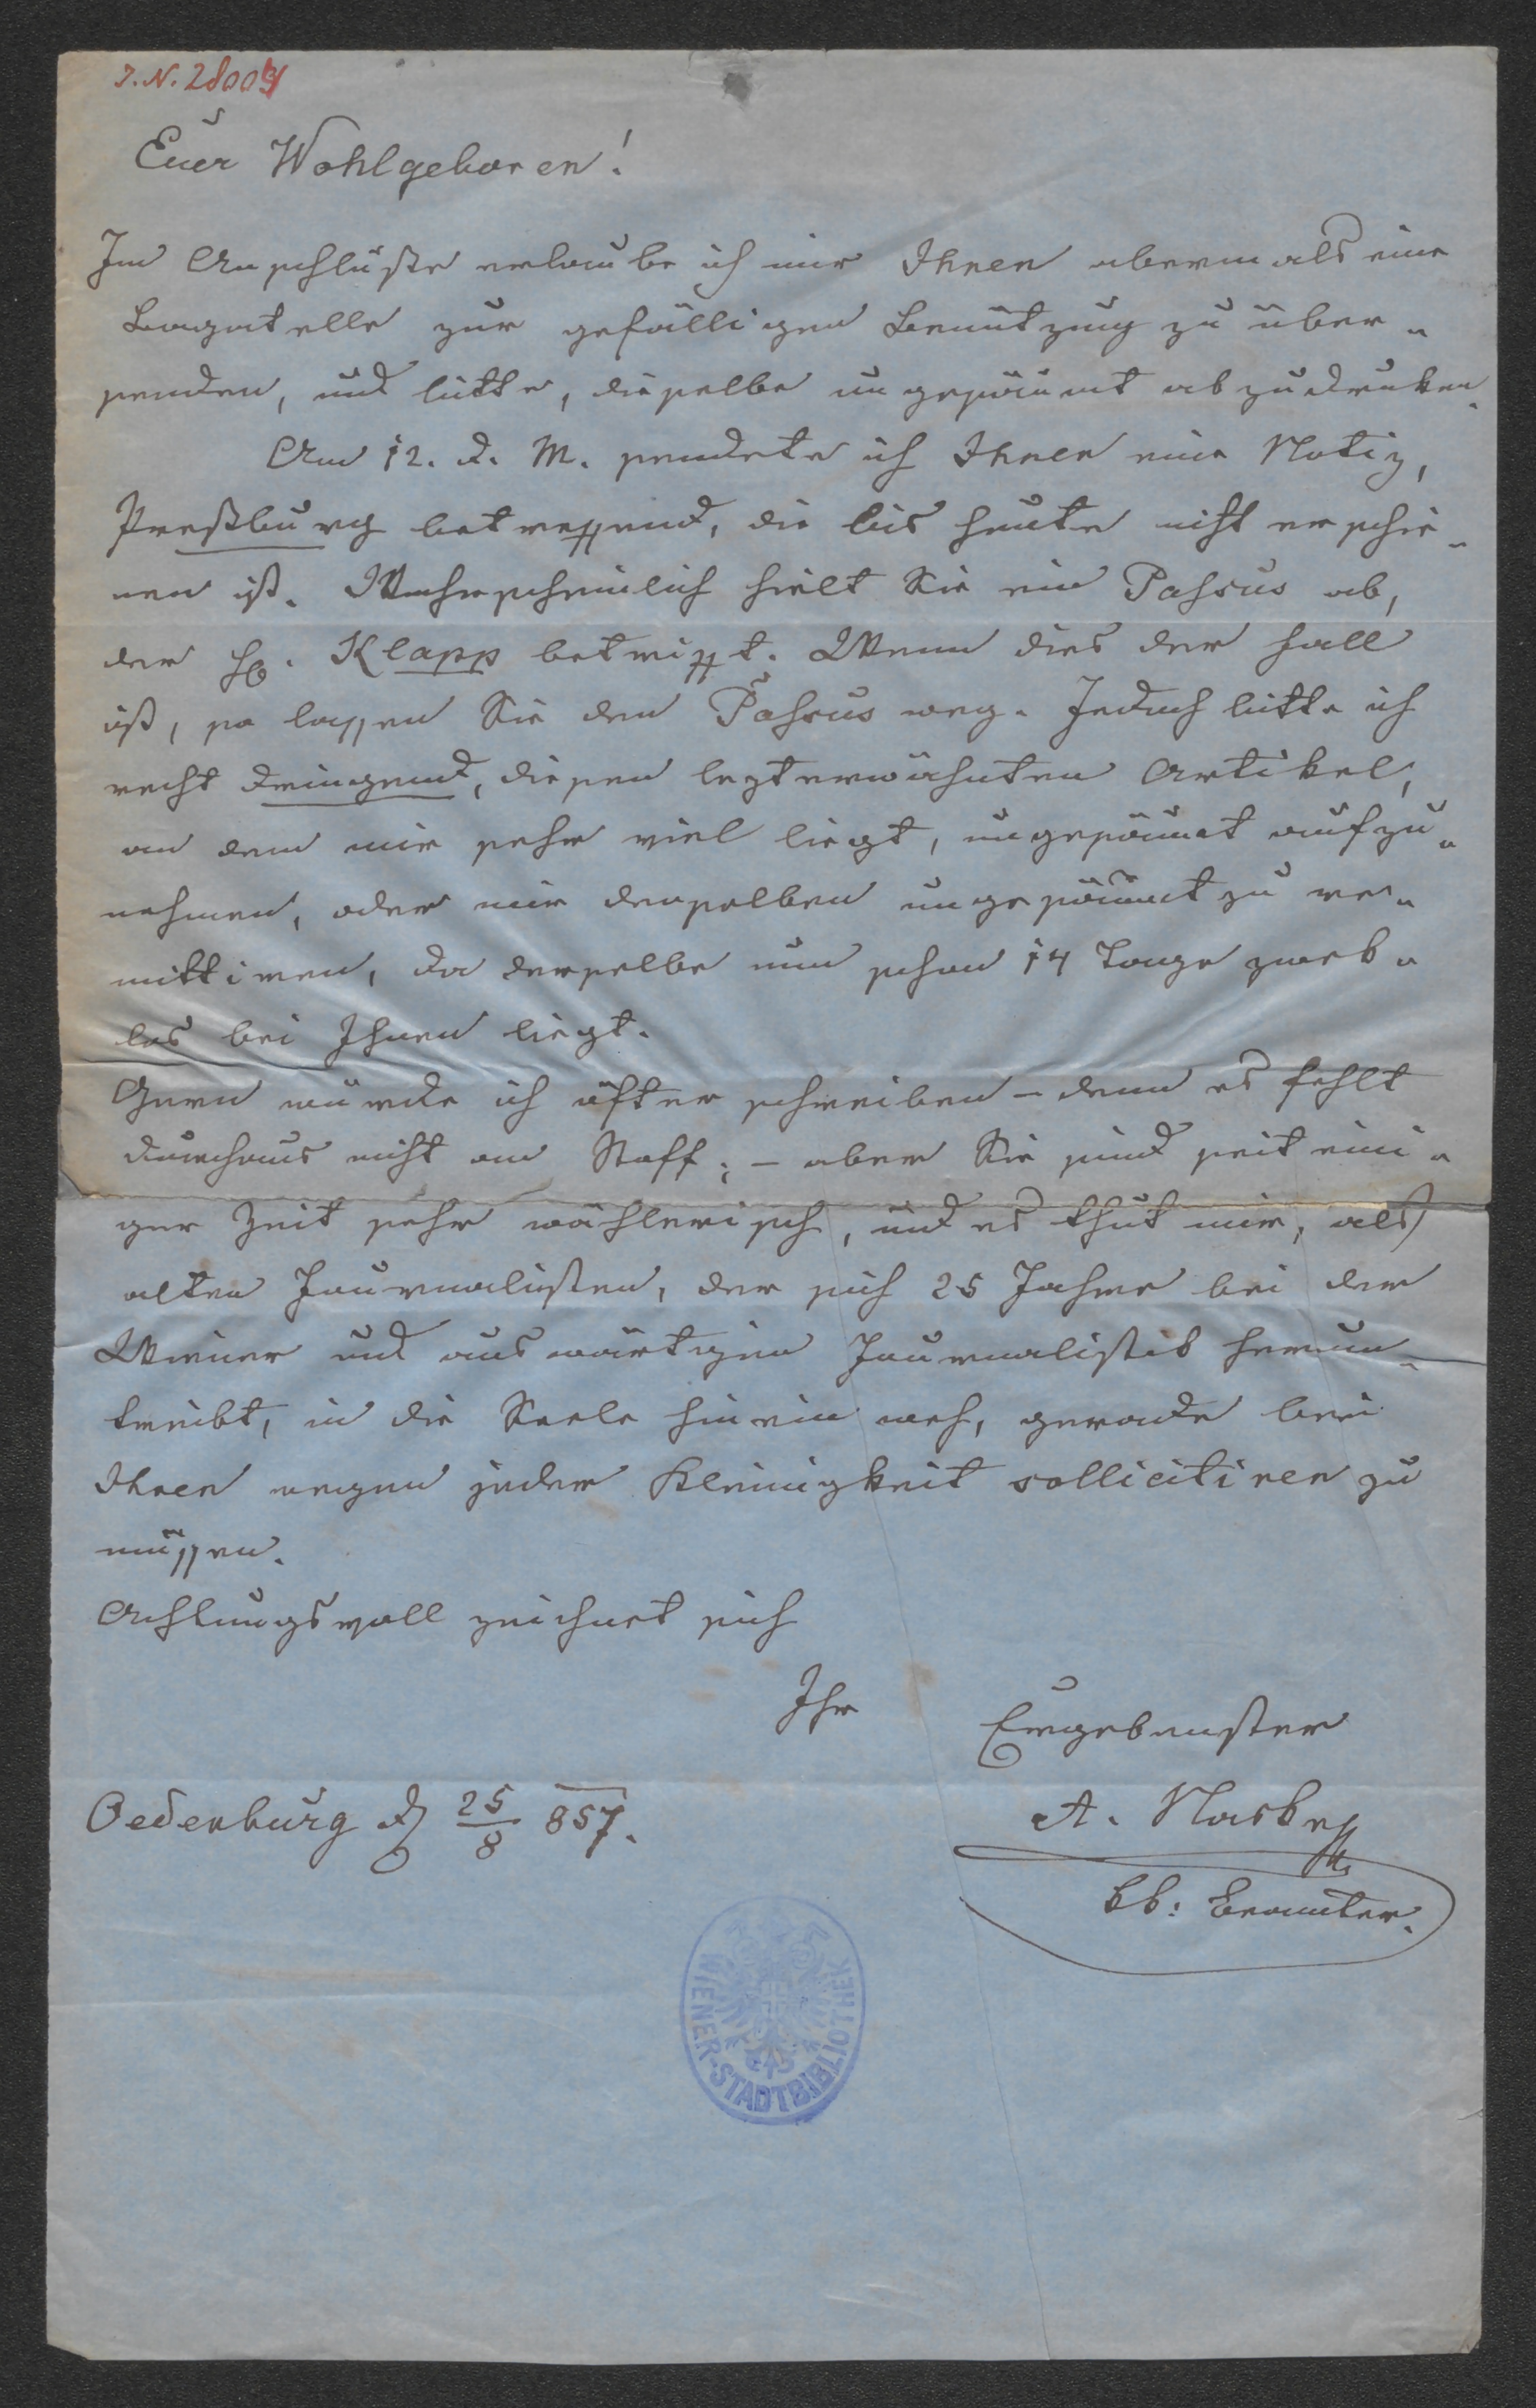 J. N. 28003
Euer Wohlgeboren!
Im Anschluße erlaube ich mir Ihnen abermals eine
Bagatelle zur gefälligen Benützung zu über-
senden, und bitte, dieselbe ungesäumt abzudrucken.
Am 12. d. M. sendete ich Ihnen eine Notiz,
Preßburg betreffend, die bis heute nicht erschie-
nen ist. Wahrscheinlich hielt Sie ein Passus ab,
der H. Klapp betrifft. Wenn dies der Fall
ist, so lassen Sie den Passus weg. Jedoch bitte ich
recht dringend, diesen lezterwähnten Artikel,
an dem mir sehr viel liegt, ungesäumt aufzu-
nehmen, oder mir denselben ungesäumt zu re-
mittiren, da derselbe nun schon 14 Tage zweck-
los bei Ihnen liegt.
Gern würde ich öfter schreiben – denn es fehlt
durchaus nicht an Stoff; – aber Sie sind seit eini-
ger Zeit sehr wählerisch, und es thut mir, als
alten Journalisten, der sich 25 Jahre bei der
Wiener und auswärtigen Journalistik herum-
treibt, in die Seele hinein weh, gerade bei
Ihnen wegen jeder Kleinigkeit sollicitiren zu
müssen.
Achtungsvoll zeichnet sich
Ihr Ergebenster
Oedenburg d 25/8 857.
A. Naske
kk: Beamter.
WIENER-STADTBIBLIOTHEK